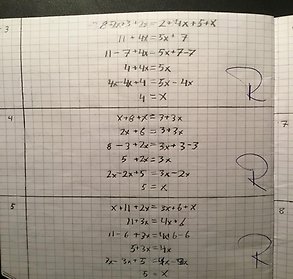 3
8-2x+3+2x=2+4x+5+x
11+4x=5x+7
11-7+4x=5x+7-7
4+4x=5x
4x-4x+4=5x-4x
4=x
R
4
x+8+x=3+3x
2x+8=3+3x
8-3+2x=3x+3-3
5+2x=3x
2x-2x+5=3x-2x
5=x
R
7
5
x+11+2x=3x+6+x
11+3x=4x+6
11-6+3x=4x+6-6
5+3x=4x
3x-3x+5=4x-3x
5=x
R
8